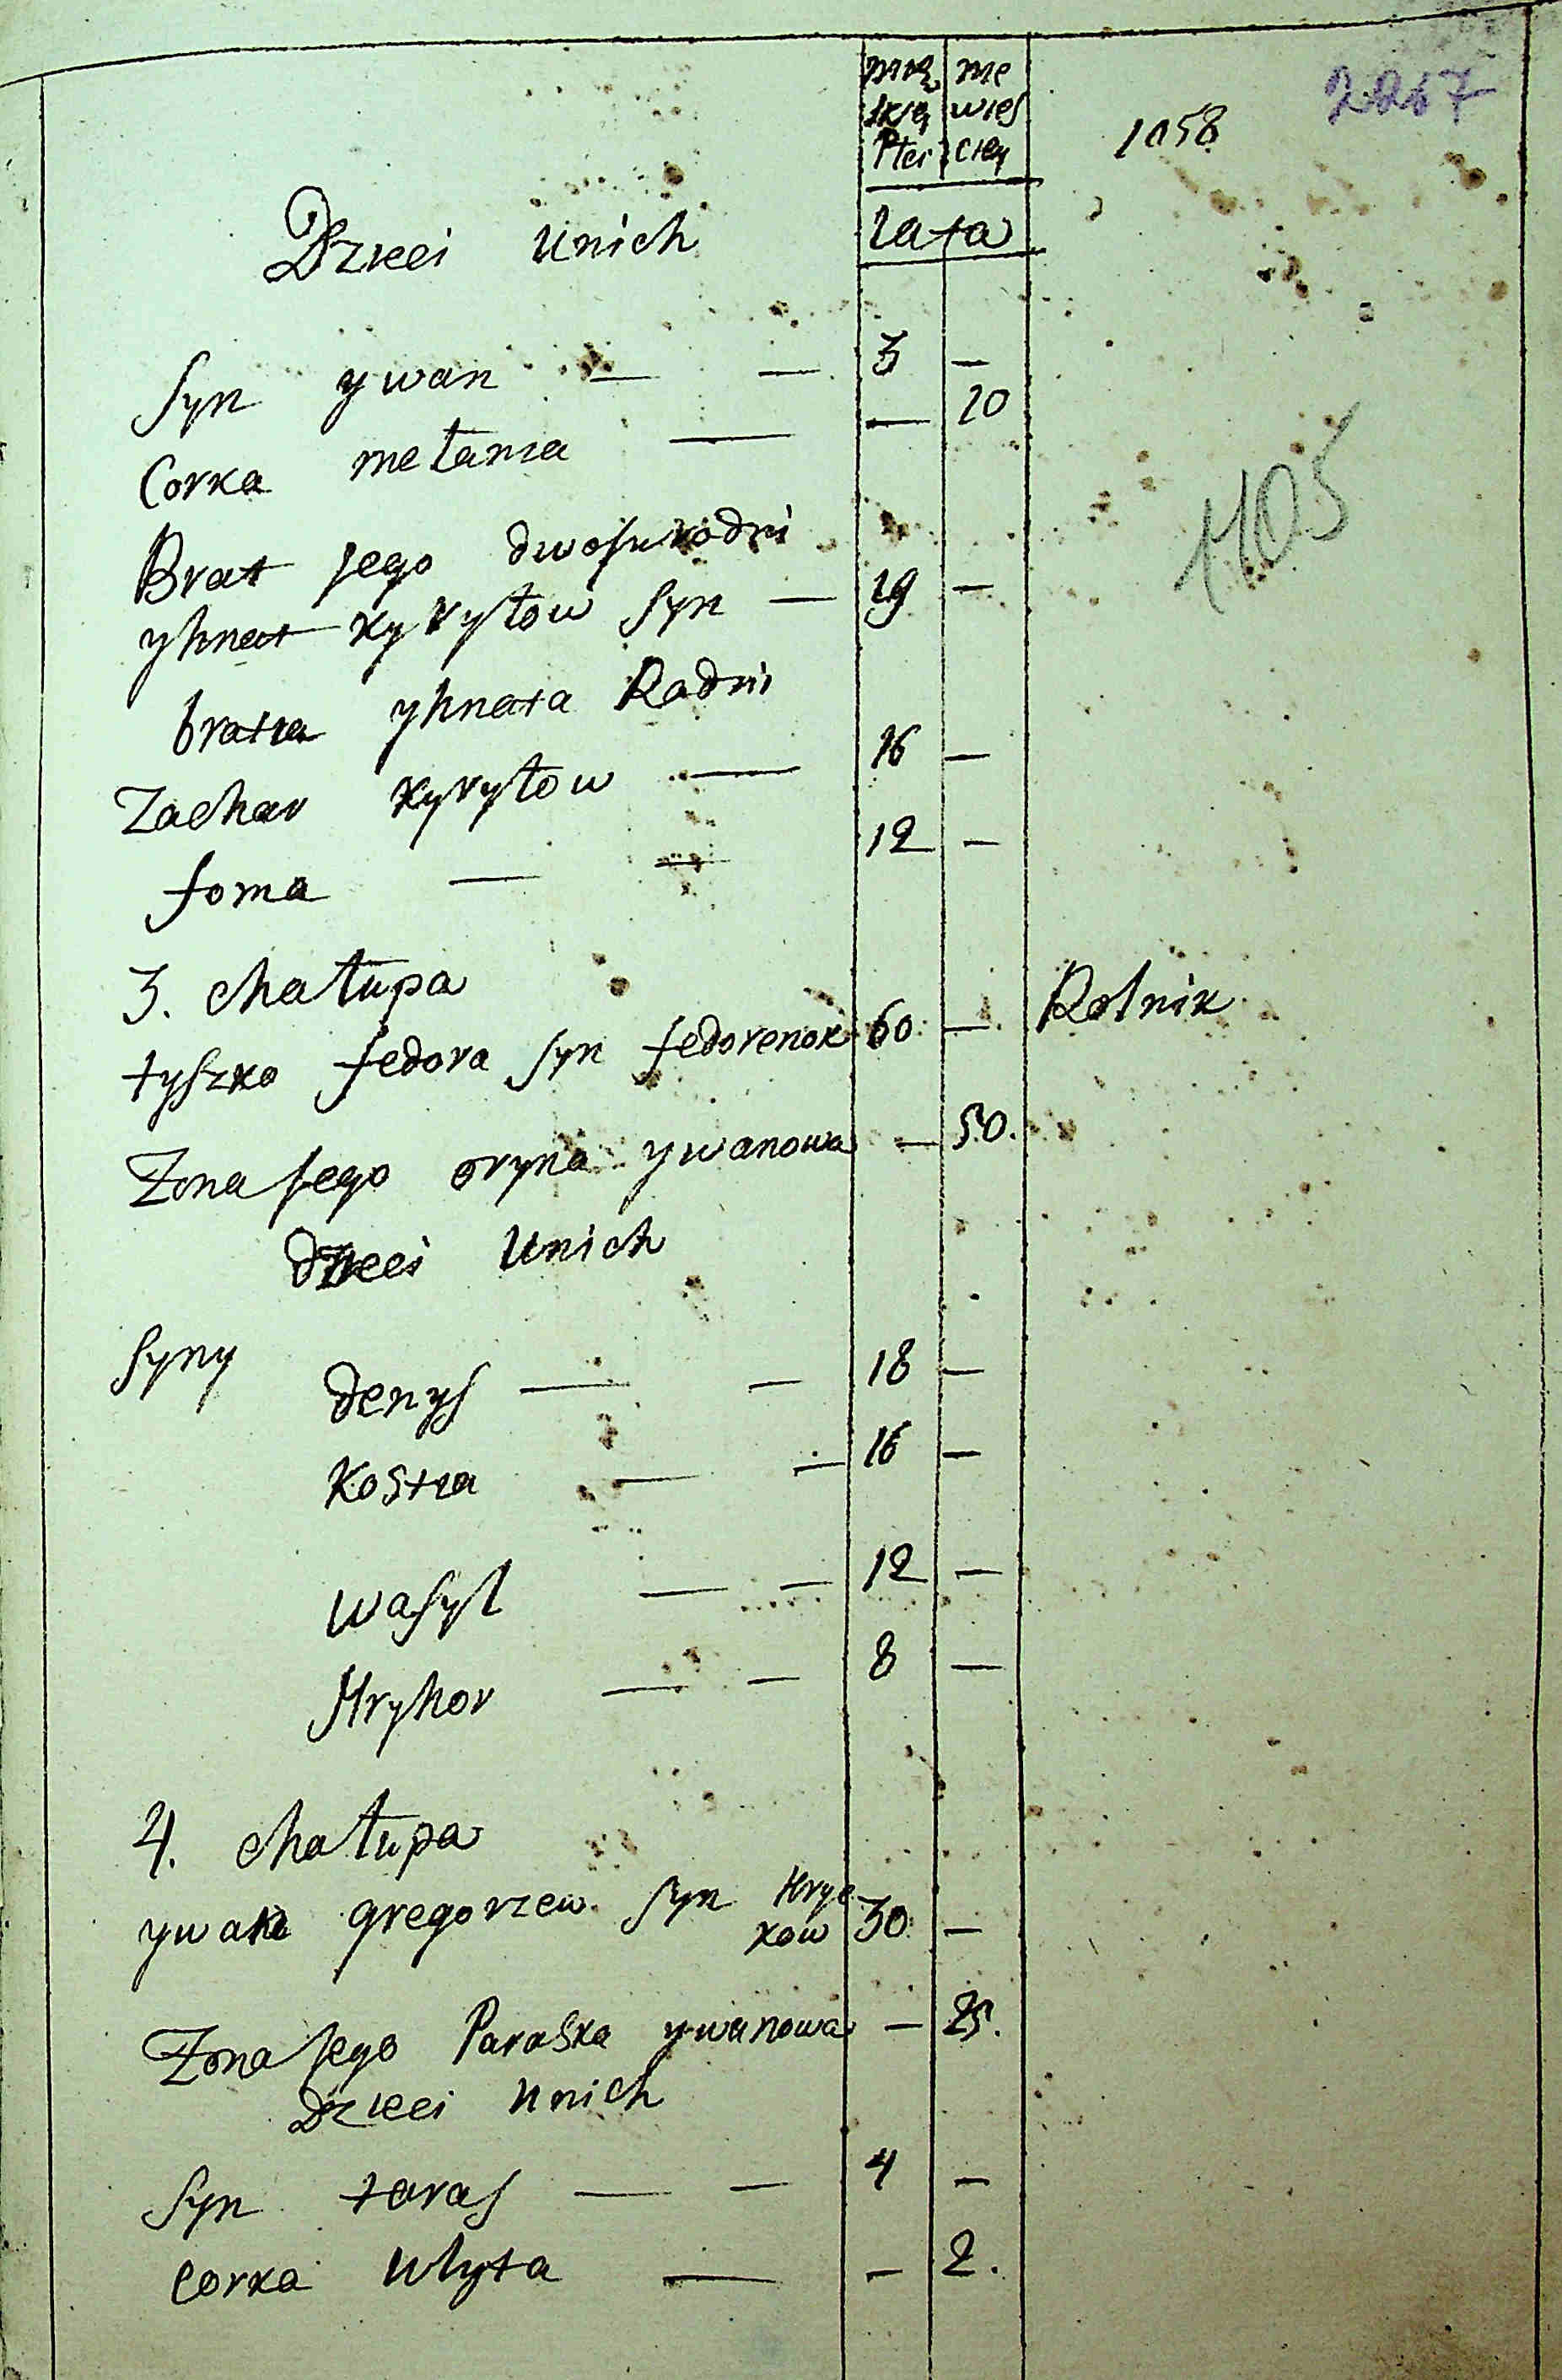 mę me
skię wies
Płci ciey
1058
2267
Dzieci unich
lata
syn ywan — — 3 —
Corka metania — — 10
1105
Brat jego dwojurodni
yhnat kyryłow syn — 19 —
bratia yhnata Radni
Zachar kyryłow — 16 —
foma — — 12 —
3. chałupa
tyszko fedora syn fedorenok 60 — Rolnik
Zona jego oryna ywanowa — 50.
dzieci unich
syny
denys — — 18 —
Kostia — — 16 —
wasyl — — 12 —
Hryhor — — 8 —
4. chałupa
ywan gregorzew syn Hryc
kow 30 —
Zona jego Paraska ywanowa — 25.
Dzieci unich
syn taras — — 4 —
corka ulyta — — 2.